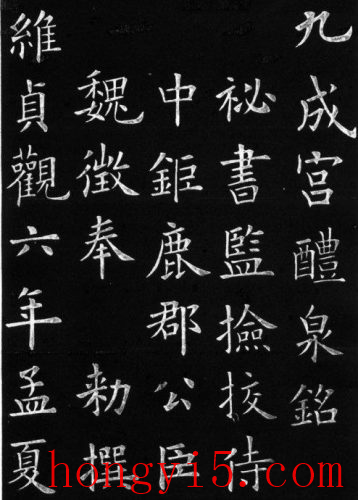 九成宫醴泉銘
祕書監撿挍侍
中鉅鹿郡公臣
魏徵奉 勅撰
維貞觀六年孟夏
hongyi5.com